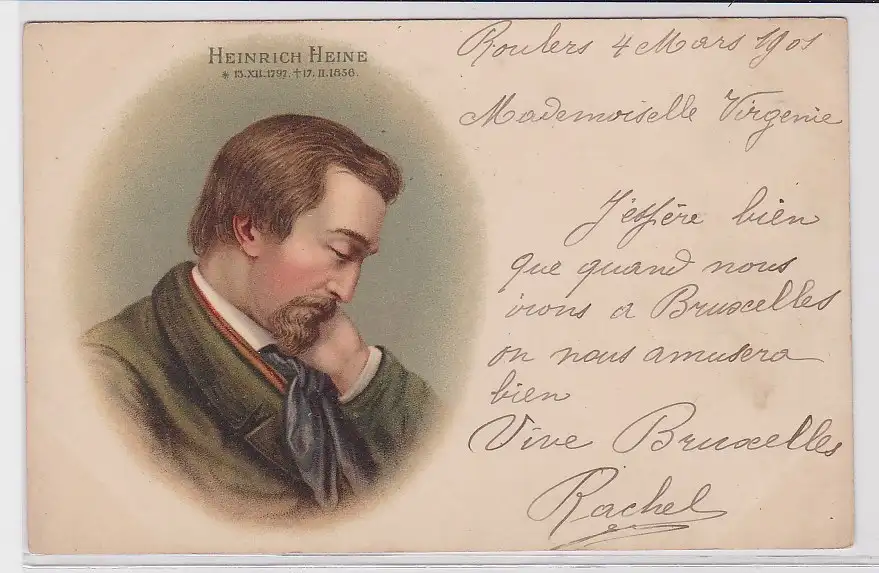 HEINRICH HEINE
* 13.XII.1797. † 17.II.1856.
Roulers 4 Mars 1901
Mademoiselle Virgenie
J'espère bien
que quand nous
irons a Bruxcelles
on nous amusera
bien
Vive Bruxcelles
Rachel